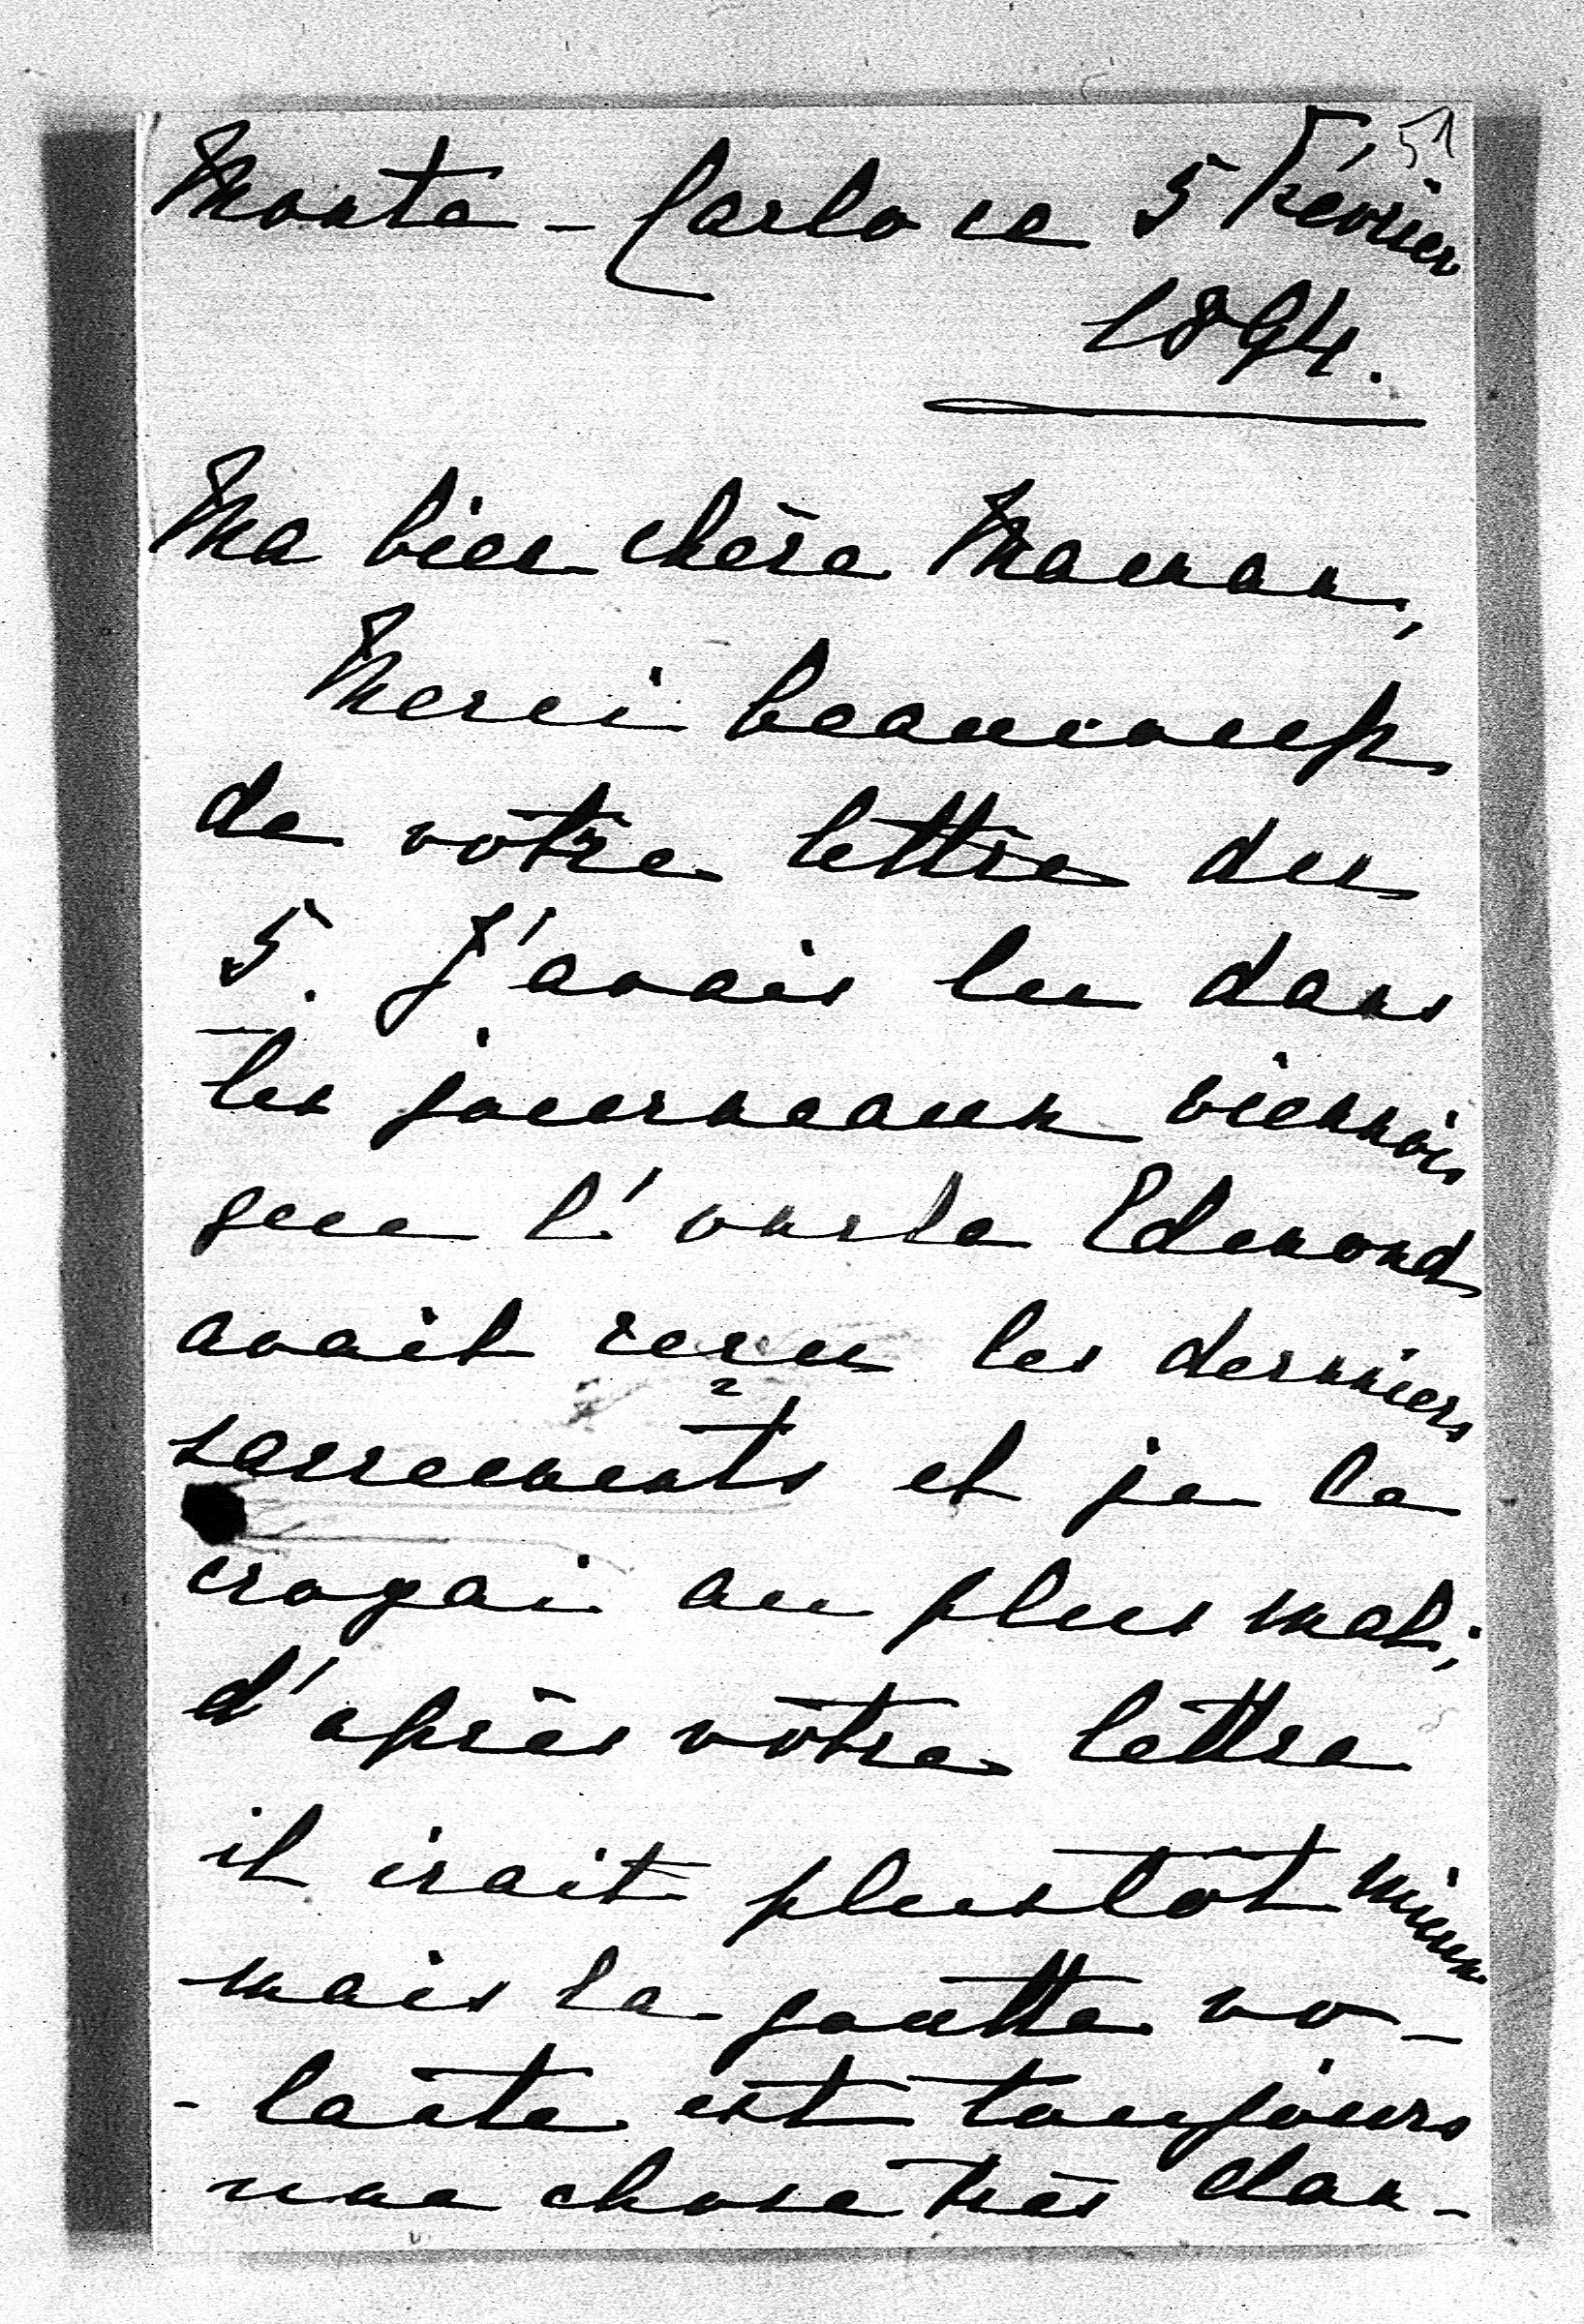 51
Monte-Carlo ce 5 Février
1894.
Ma bien chère Maman,
Merci beaucoup
de vôtre lettre du
5. J'avais lu dans
les journeaux viennois
que l'oncle Edmond
avait reçu les derniers
sacrements et je le
croyai au plus mal;
d'après vôtre lettre
il irait plustôt mieux
mais la goutte vo-
-lante est toujours
une chose très dan-